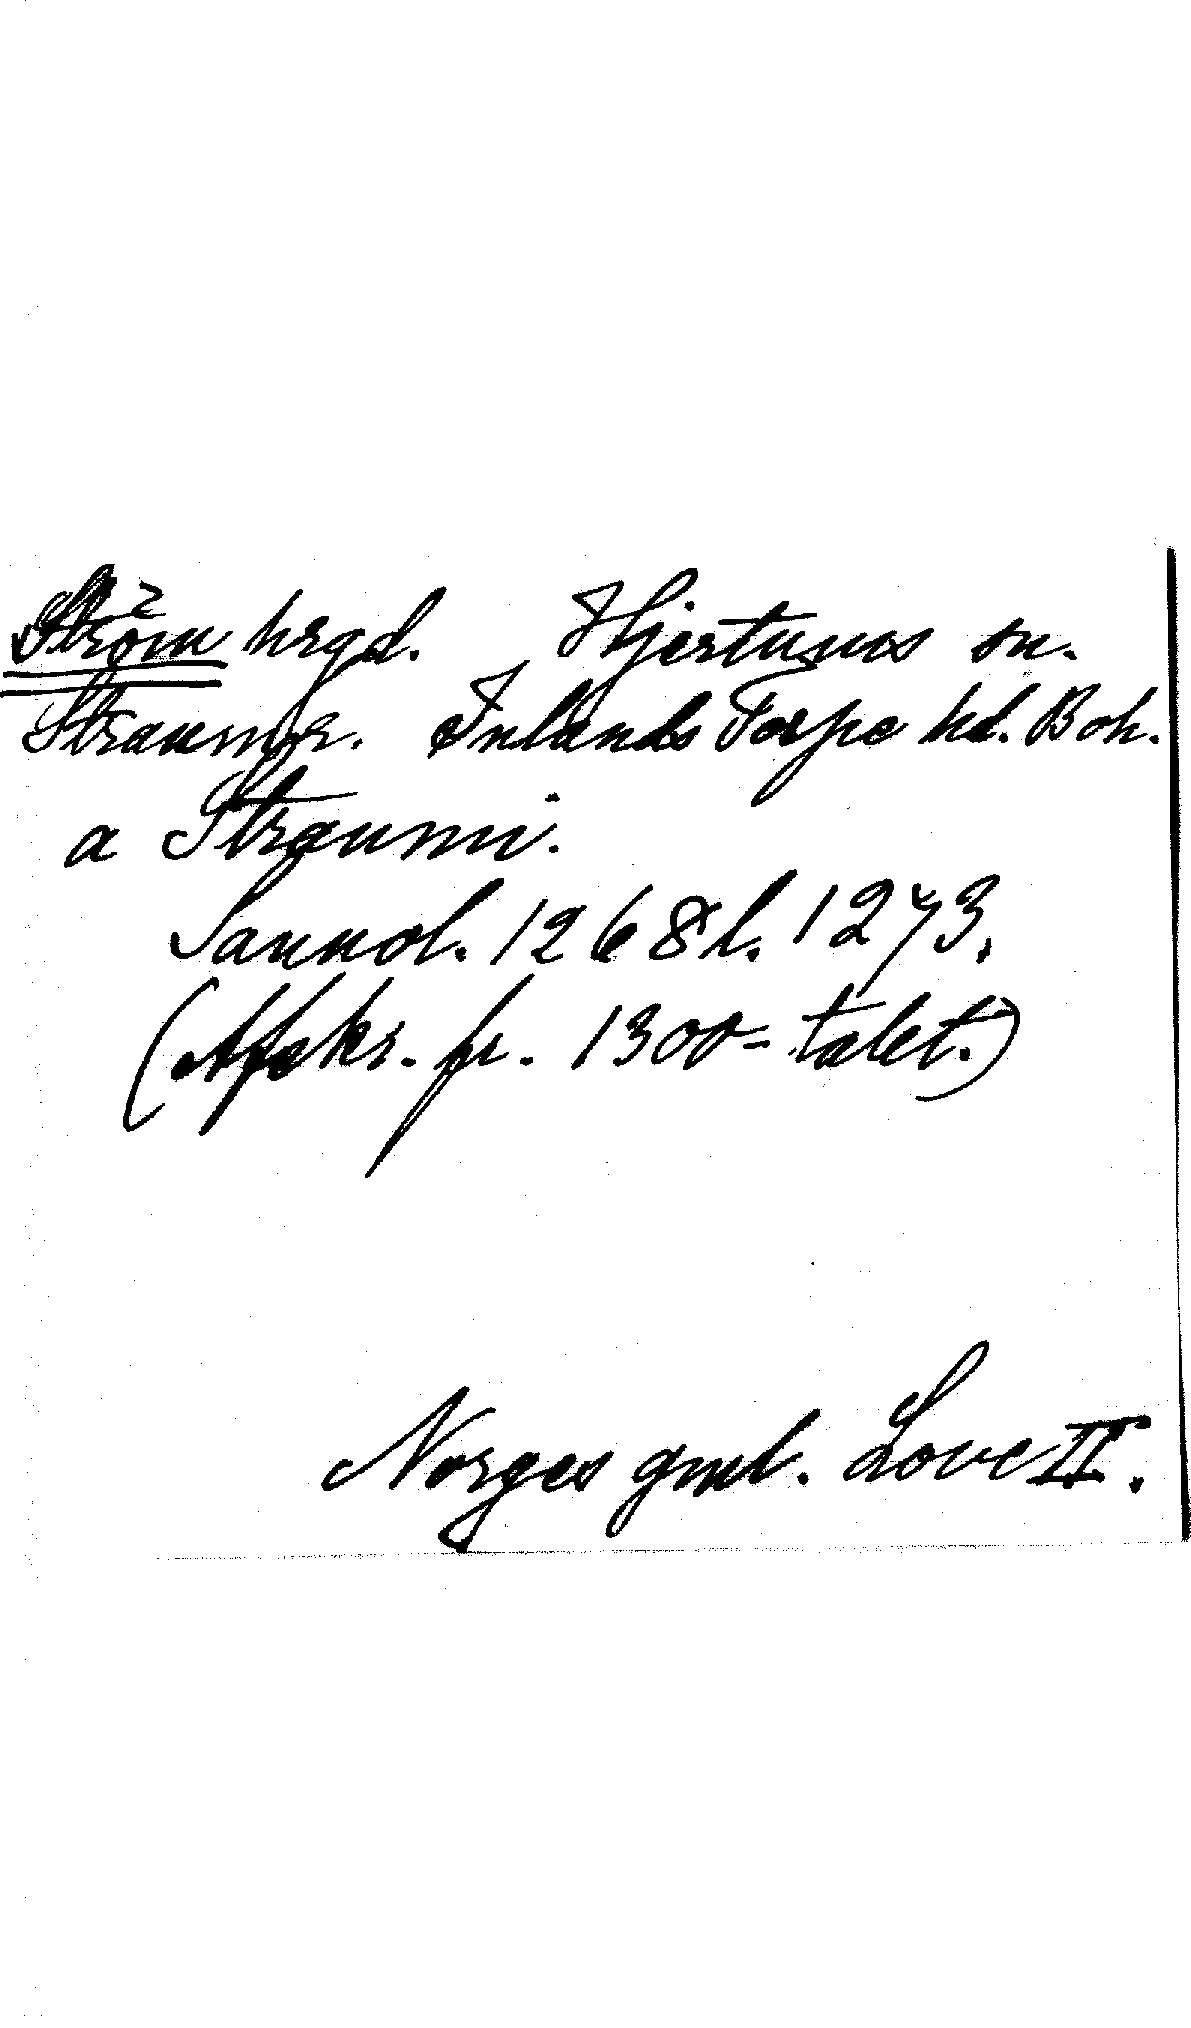 Ström hrgd. Hjertums sn.
Straumr. Inlands Torpe hd. Boh.
a Straumi.
Sannol. 1268 l. 1273.
(Afskr. fr. 1300-talet.)
Norges gml. Love II.